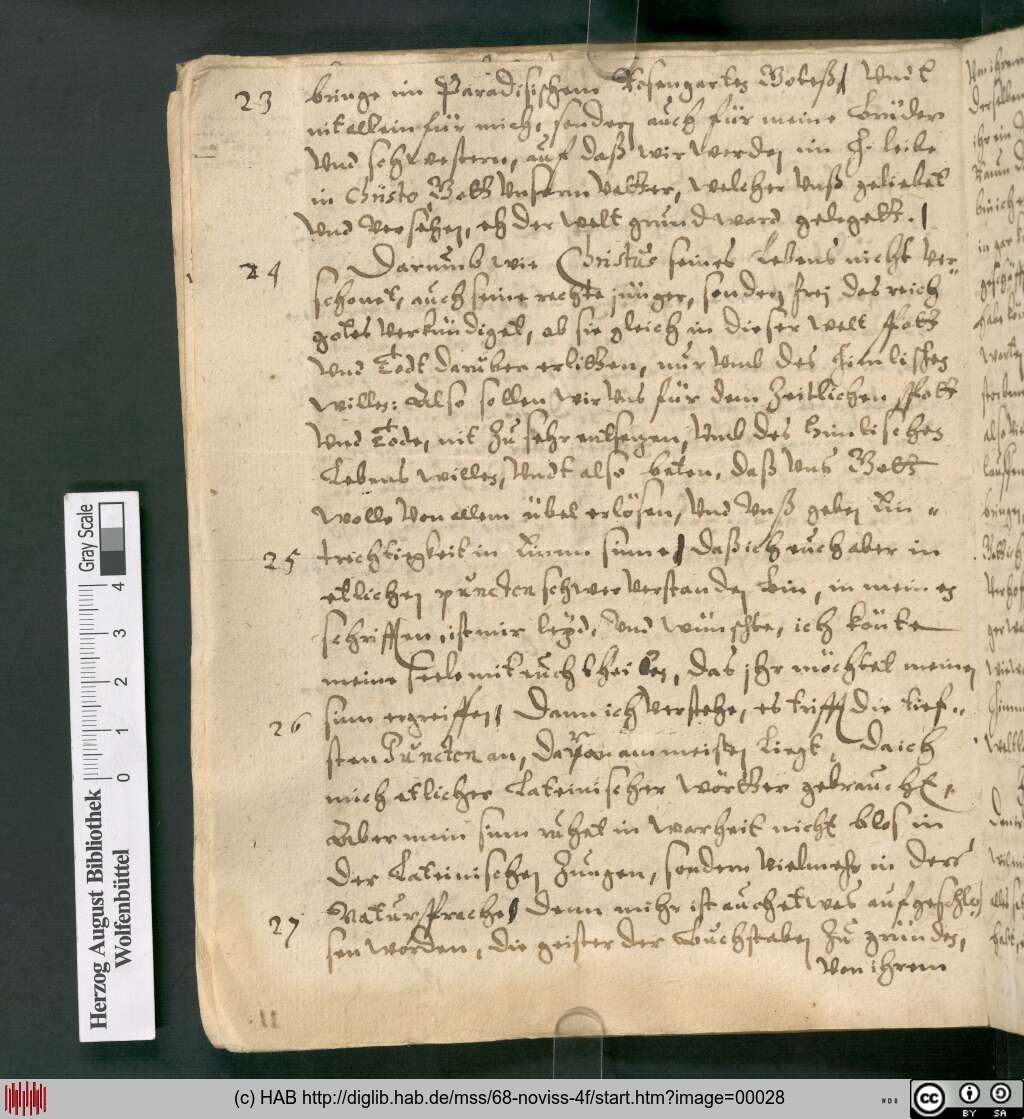 23 bringe im Paradisischem Rosengarten Gottes/ Undt
nit allein für mich, sondern auch für meine brüder
Und schwestern, auf daß wir werden ein H. leibe
in Christo Gott Unserm Vatter, welcher Unß geliebet
Und versehen, eh der welt grund ward gelegett. /
24 Darumb wie Christus seines Lebens nicht ver-
schonet, auch seine rechte jünger, sondern frei das reich
gotes verkündiget, ob sie gleich in dieser welt spott
Und Todt darüber erlitten, nur Umb des himlischen
willen: Also sollen wir Uns für dem Zeitlichen spott
Und Tode, nit Zu sehr entsezen, Umb des himlischen
Lebens willen, Undt also beten, daß Uns Gott
wolle Von allem übel erlösen, Und Unß geben Ein-
25 trechtigkeit in Einem sinne/ Daß ich euch aber in
etlichen puncten schwer verstanden bin, in meinen
schrifften, ist mir leyd, Und wünschte, ich könte
meine seele mit euch theilen, das jhr möchtet meinen
26 sinn ergreiffen/ Dann ich verstehe, es trifft die tief-
sten Puncten an, daran am meisten liegt, Da ich
mich etlicher Lateinischer wörtter gebraucht,
Aber mein sinn ruhet in warheit nicht blos in
der Lateinischen Zungen, sondern vielmehr in der
27 Natursprache/ Denn mihr ist auch etwas aufgeschlos-
sen worden, die geister der buchstaben Zu gründen,
Von ihrem
Gray Scale
4
3
2
1
0
Herzog August Bibliothek
Wolfenbüttel
(c) HAB http://diglib.hab.de/mss/68-noviss-4f/start.htm?image=00028
WDB
cc
BY SA